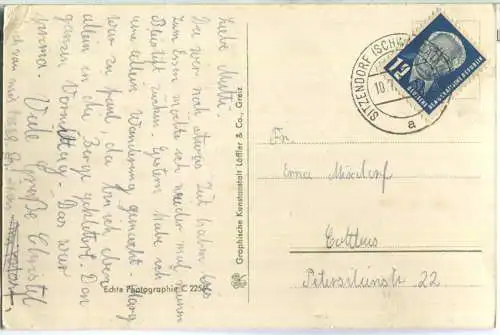 Liebe Mutti.
Da wir noch etwas Zeit haben bis
zum Essen möchte ich wieder mal einen
Bleistift zücken. Gestern habe ich
eine allein Wanderung gemacht. Marg
war zu faul, da bin ich eben
allein in die Berge geklettert. Den
ganzen Vormittag. Das war
prima. Viele Grüße Christel
Graphische Kunstanstalt Löffler & Co., Greiz
Echte Photographie C 225
SITZENDORF (SCHW
10.
a
12
DEUTSCHE DEMOKRATISCHE REPUBLIK
Fr.
Erna
Cottbus
Petersilienstr. 22